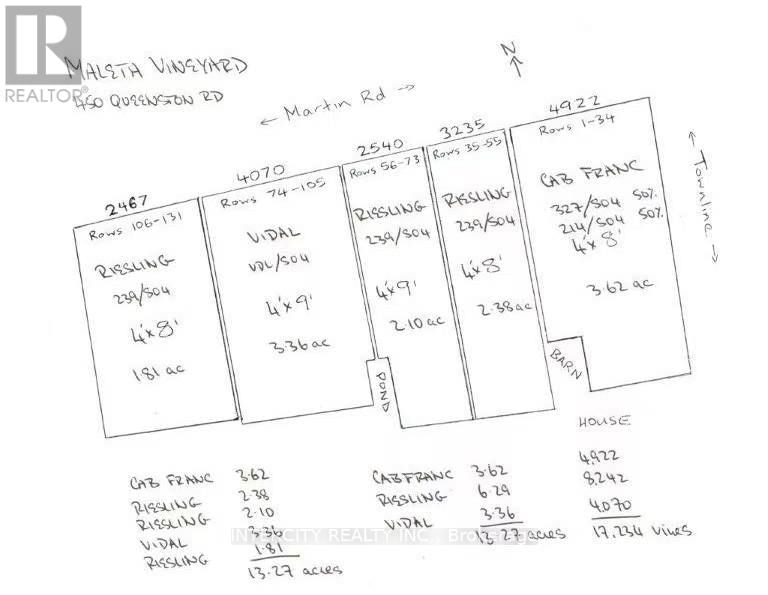 REALTOR®
MALETA VINEYARD
450 QUEENSTON RD
N
← Martin Rd →
← Townline →
2467
Rows 106-131
RIESLING
239/SO4
4'x8'
1.81 ac
4070
Rows 74-105
VIDAL
VDL/SO4
4'x9'
3.36 ac
2540
Rows 56-73
RIESLING
239/SO4
4'x9'
2.10 ac
POND
3235
Rows 35-55
RIESLING
239/SO4
4'x8'
2.38 ac
4922
Rows 1-34
CAB FRANC
327/SO4 50%
214/SO4 50%
4'x8'
3.62 ac
BARN
HOUSE
CAB FRANC 3.62
RIESLING 2.38
RIESLING 2.10
VIDAL 3.36
RIESLING 1.81
13.27 acres
CAB FRANC 3.62 4,922
RIESLING 6.29 8,242
VIDAL 3.36 4,070
13.27 acres 17,234 vines
INTERCITY REALTY INC., Brokerage